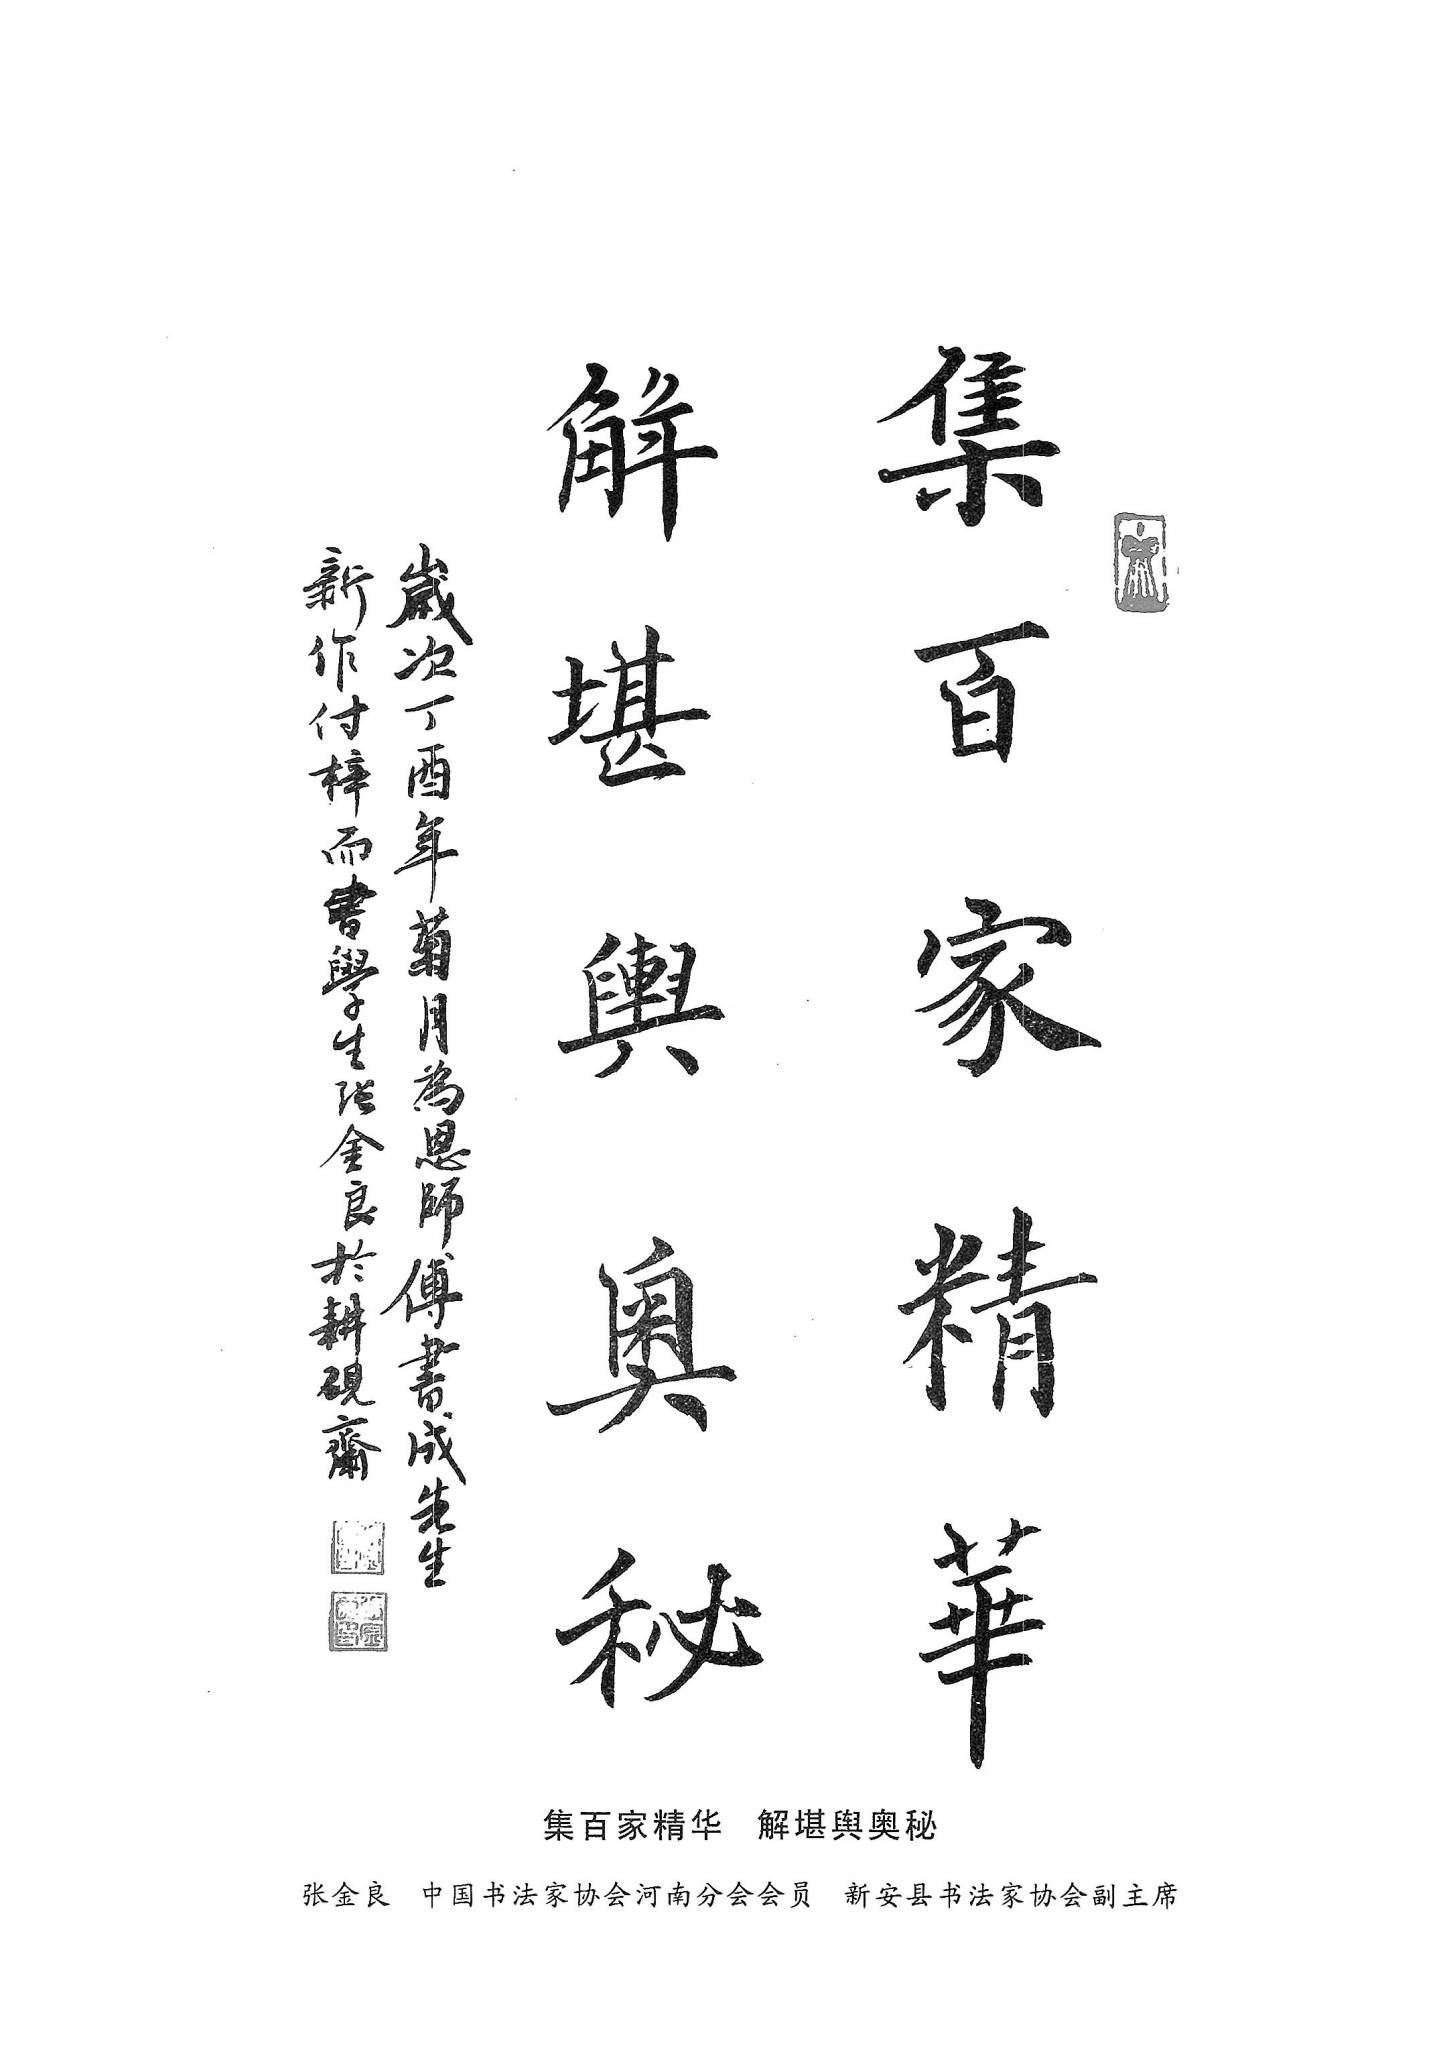 集百家精華
解堪輿奧秘
歲次丁酉年菊月為恩師傅書成先生
新作付梓而書學生张金良於耕硯齋
集百家精华　解堪舆奥秘
张金良　中国书法家协会河南分会会员　新安县书法家协会副主席